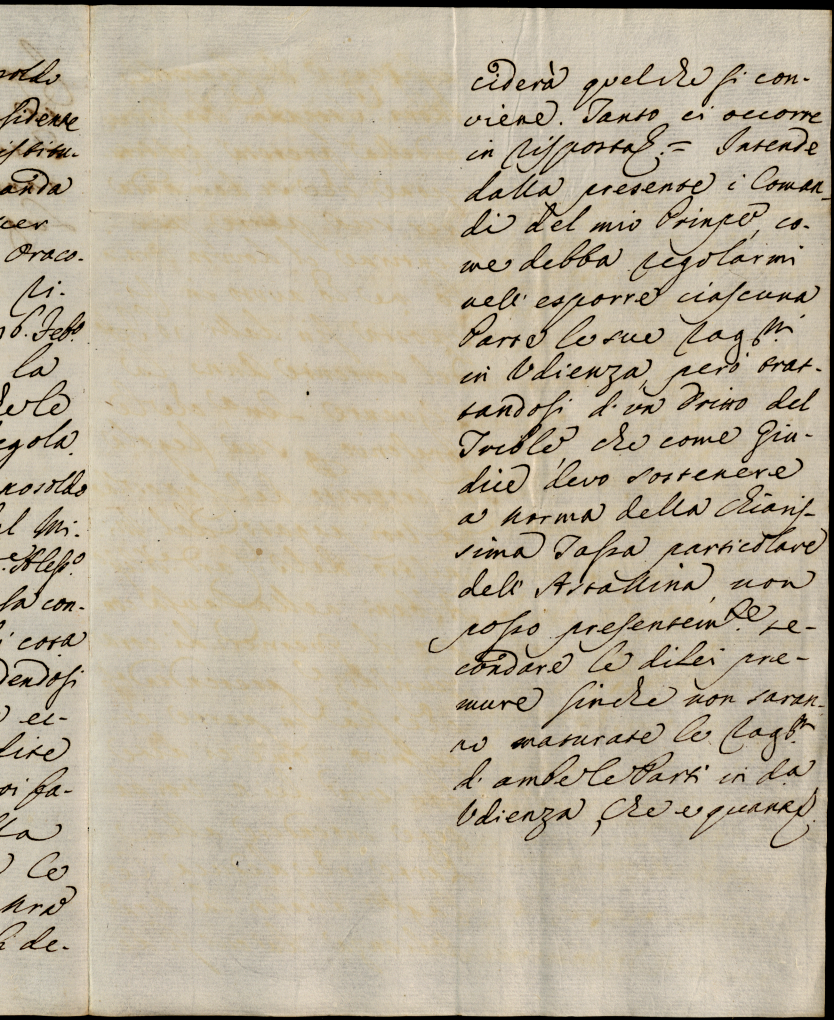 soldo
sidente
istitu-
anda
cer
Oraco-
ri-
6. Feb.o
la
dele
egola
nosoldo
el Mi-
Aless.o
sa con-
i cosa
dendosi
ei-
dite
oi fa-
ta
le
nra
de-
ciderà quelche si con-
viene. Tanto ci occorre
in risposta = Intende
dalla presente i Coman-
di del mio Prinpe, co-
me debba regolarmi
nell' esporre ciascuna
Parte le sue rag.ni
in Vdienza, però trat-
tandosi d'un Dritto del
Trible, che come Giu-
dice devo sostenere
a norma della chiaris-
sima Tassa particolare
dell' Astallina, non
posso presentem.te se-
condare le dilei pre-
mure sinche non saran-
no maturate le rag.ni
d' ambe le Parti in da
Vdienza, che e quanto